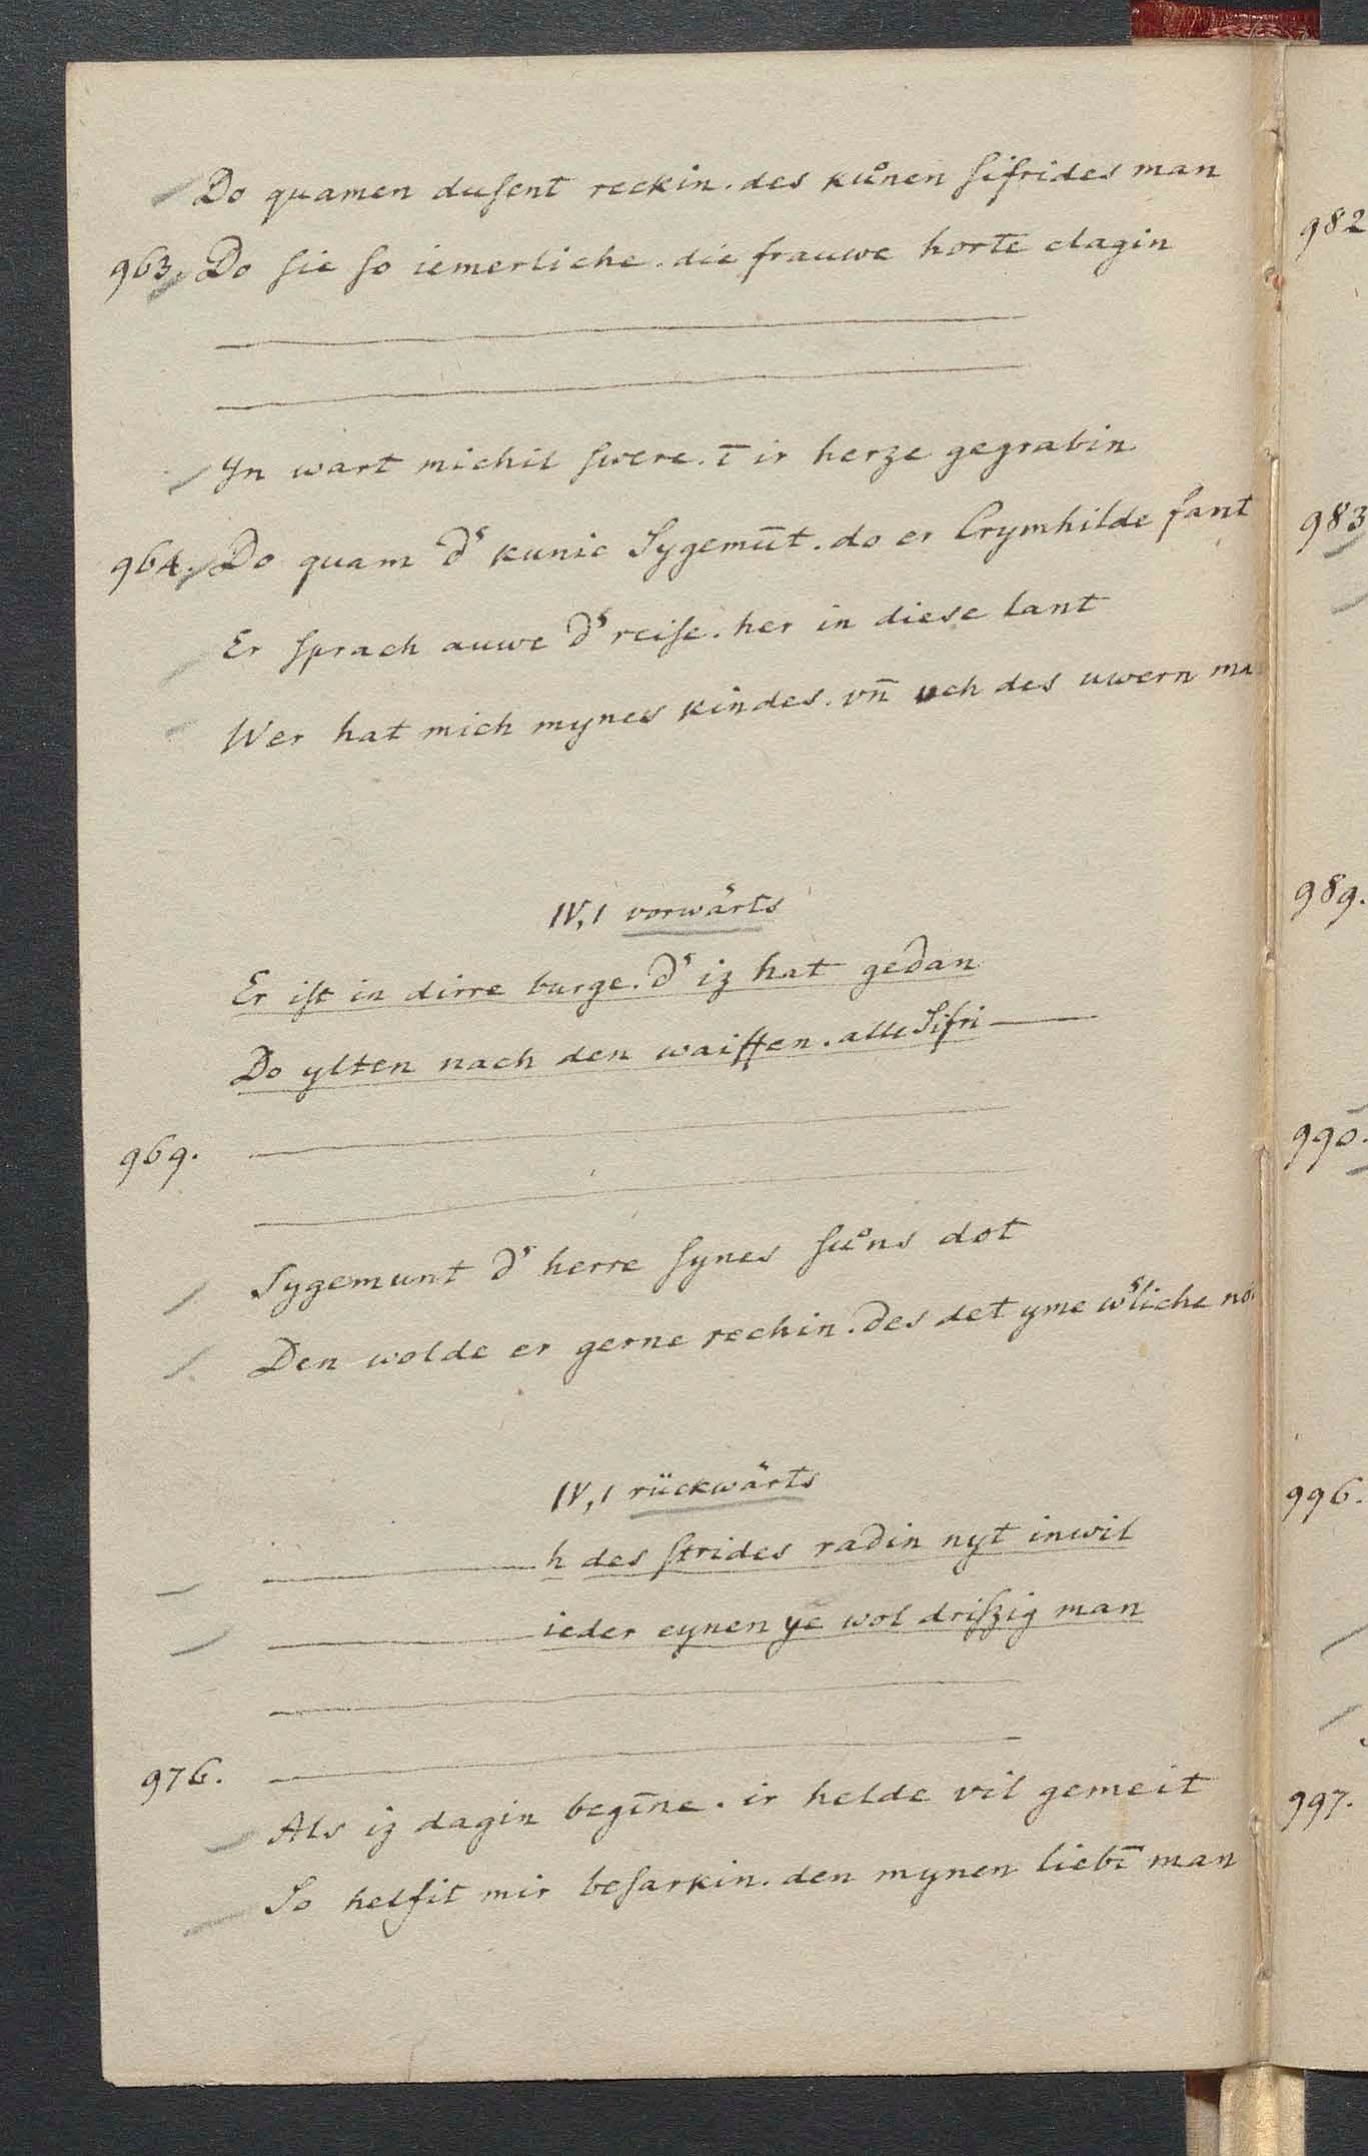 Do quamen duſent reckin. des kuͦnen ſifrides man
963. Do ſie ſo iemerliche. die frauwe horte clagin
Yn wart michil ſwere. ī ir herze gegrabin
964. Do quam d' kunic Sygemūt. do er Crymhilde fant
Er ſprach auwe d' reiſe. her in dieſe lant
Wer hat mich mynes kindes. vn̄ uch des uwern ma
IV, 1 vorwärts
Er iſt in dirre burge. d' iz hat gedan
Do ylten nach den waiffen. alle Sifri
969.
Sygemunt d' herre ſynes ſuͦns dot
Den wolde er gerne rechin. des det yme w'liche no
IV, 1 rückwärts
h des ſtrides radin nyt inwil
ieder eynen ye wol driſzig man
976.
Als iz dagin begīne. ir helde vil gemeit
So helfit mir beſarkin. den mynen liebī man
982
983
989.
990.
996.
997.